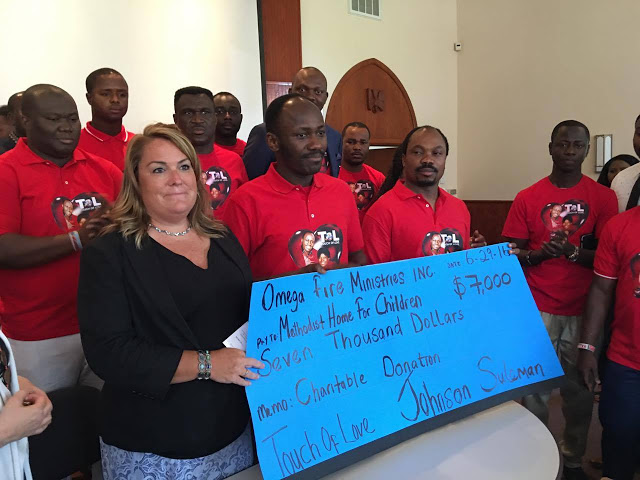 Omega Fire Ministries INC.
DATE 6-29-16
Pay To: Methodist Home For Children
$7,000
Seven Thousand Dollars
Memo: Charitable Donation
Touch Of Love
Johnson Suleman
TOL
TOL